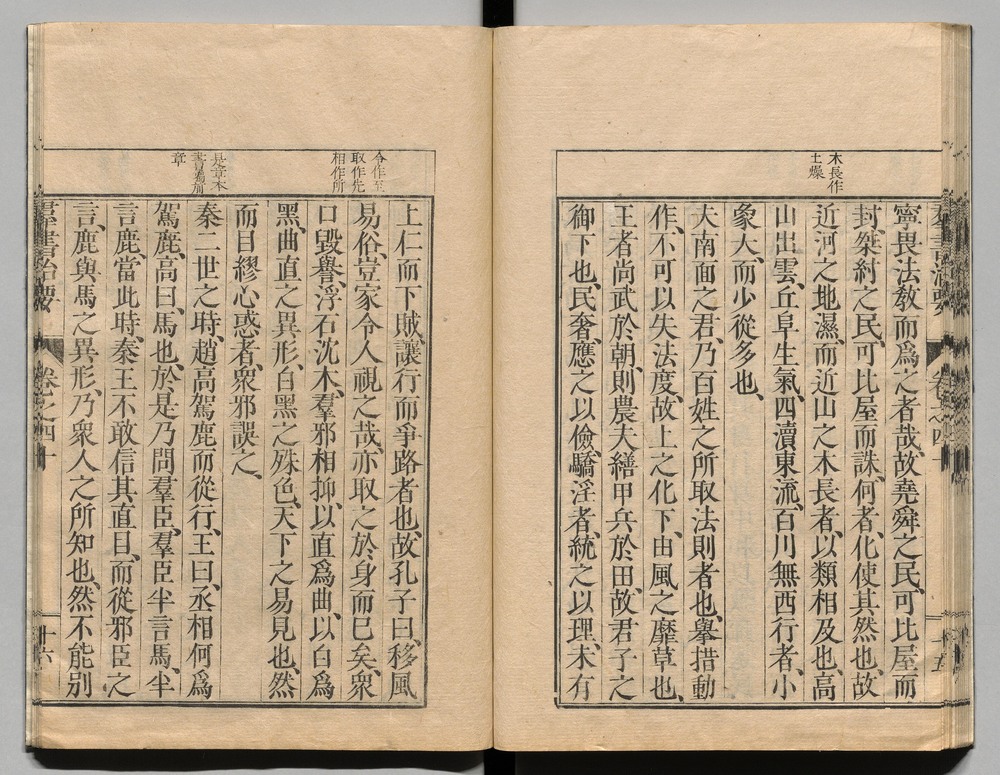 木長作
土燥
寧畏法教而爲之者哉、故堯舜之民、可比屋而
封、桀紂之民、可比屋而誅、何者、化使其然也、故
近河之地濕、而近山之木長者、以類相及也、高
山出雲、丘阜生氣、四瀆東流、百川無西行者、小
象大、而少從多也、
夫南面之君、乃百姓之所取法則者也、舉措動
作、不可以失法度、故上之化下、由風之靡草也、
王者尚武於朝、則農夫繕甲兵於田、故君子之
御下也、民奢、應之以儉、驕淫者、統之以理、未有
令作至
取作先
相作所
是章本
書貫前
章
上仁而下賊、讓行而爭路者也、故孔子曰、移風
易俗、豈家令人視之哉、亦取之於身而已矣、衆
口毀譽、浮石沈木、羣邪相抑、以直爲曲、以白爲
黑、曲直之異形、白黑之殊色、天下之易見也、然
而目繆心惑者、衆邪誤之、
秦二世之時、趙高駕鹿而從行、王曰、丞相何爲
駕鹿、高曰、馬也、於是乃問羣臣、羣臣半言馬、半
言鹿、當此時、秦王不敢信其直目、而從邪臣之
言、鹿與馬之異形、乃衆人之所知也、然不能別
羣書治要
卷之四十
十六